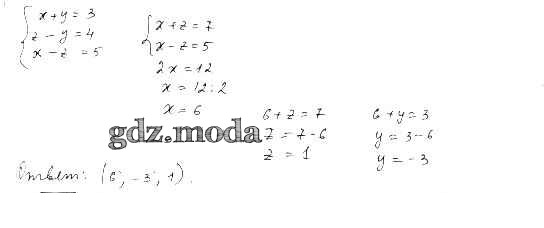 x + y = 3
z - y = 4
x - z = 5
x + z = 7
x - z = 5
2x = 12
x = 12 : 2
x = 6
6 + z = 7
z = 7 - 6
z = 1
6 + y = 3
y = 3 - 6
y = - 3
gdz.moda
Ответ: (6; -3; 1).